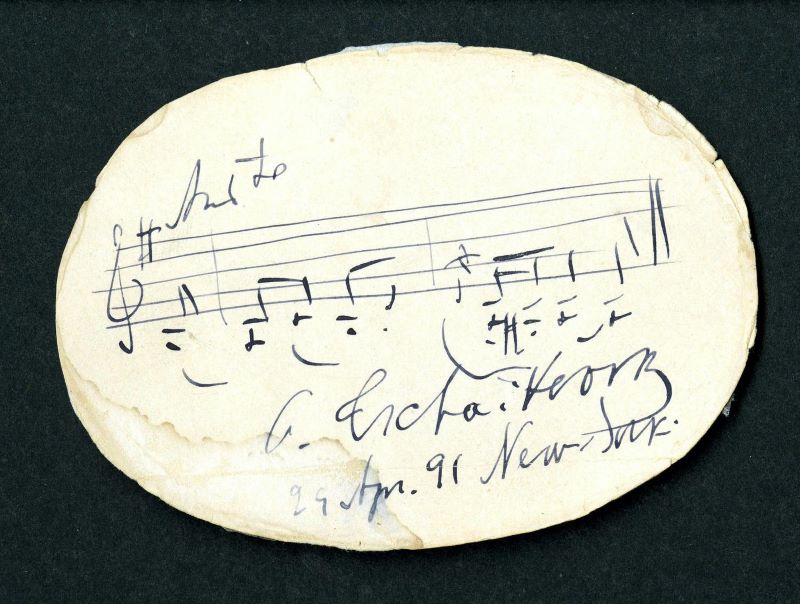 Andte
P. Tschaïkovsky
29 Apr. 91 New-York.